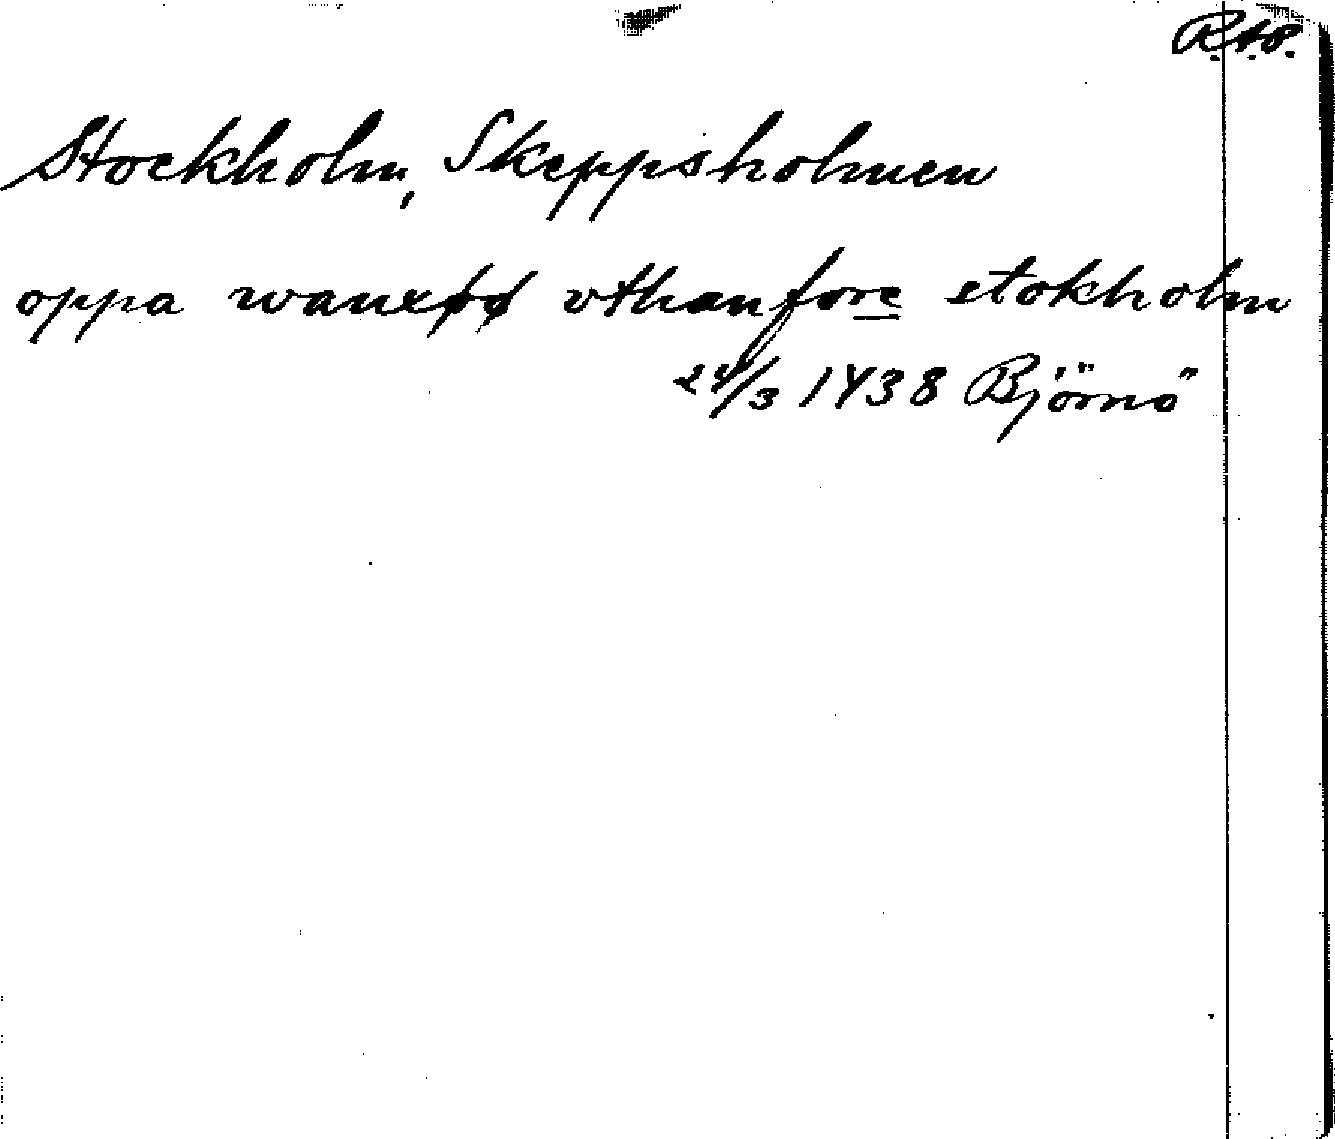 R.A.P.
Stockholm, Skeppsholmen
oppa wauexøø vthanfore stokholm
24/3 1438 Björnö